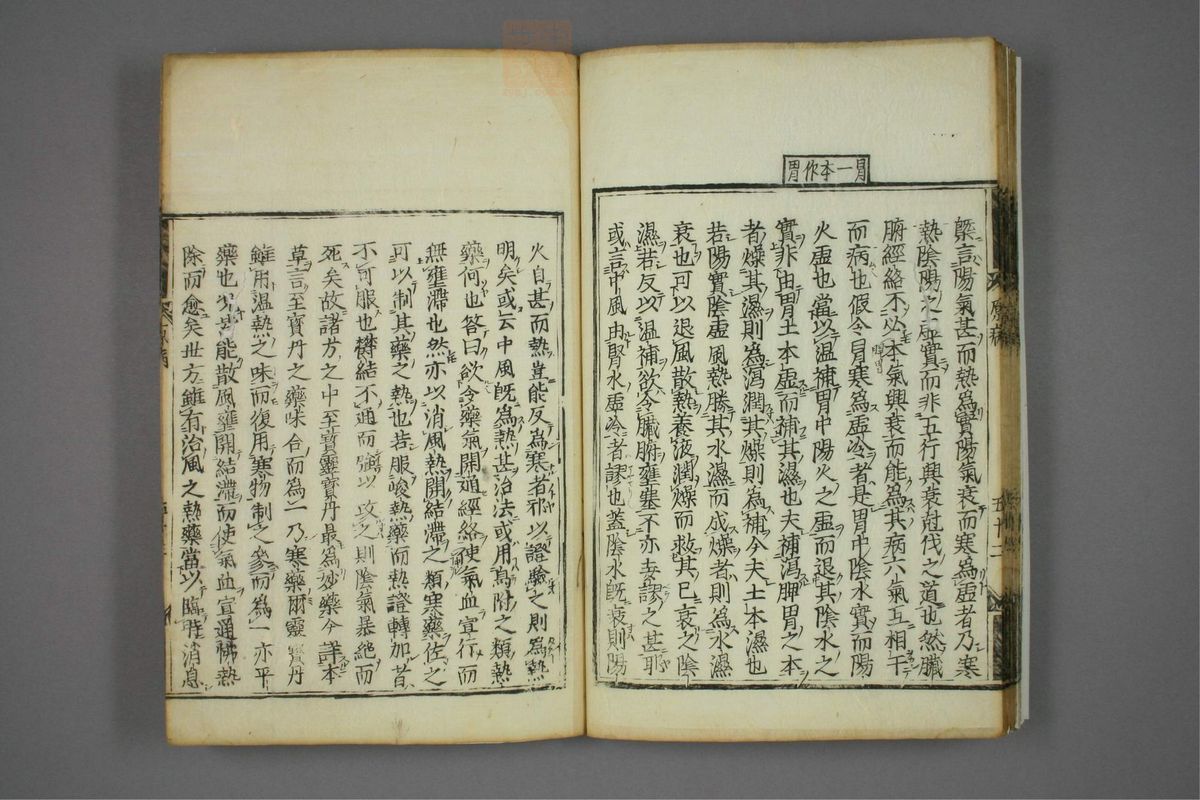 胃一本作胃
槩言陽氣甚而熱為實陽氣衰而寒為虛者乃寒
熱陰陽之虛實而非五行興衰尅伐之道也然臟
腑經絡不必本氣興衰而能為其病六氣互相干
而病也假令胃寒為虛冷者是胃中陰水實而陽
火虛也當以温補胃中陽火之虛而退其陰水之
實非由胃土本虛而補其濕也夫補瀉脾胃之本
者燥其濕則為瀉潤其燥則為補今夫土本濕也
若陽實陰虛風熱勝其水濕而成燥者則為水濕
衰也可以退風散熱養液潤燥而救其已衰之陰
濕若反以温補欲令臟腑壅塞不亦去謬之甚耶
或言中風由腎水虛冷者謬也蓋陰水既衰則陽
原病
五十二
火自甚而熱豈能反為寒者邪以證驗之則為熱
明矣或云中風既為熱甚治法或用烏附之類熱
藥何也答曰欲令藥氣開通經絡使氣血宣行而
無壅滯也然亦以消風熱開結滯之類寒藥佐之
可以制其藥之熱也若服峻熱藥而熱證轉加者
不可服也欝結不通而強以攻之則陰氣暴絶而
死矣故諸方之中至寶靈寶丹最為妙藥今詳本
草言至寶丹之藥味合而為一乃寒藥爾靈寶丹
雖用温熱之味而復用寒物制之參而為一亦平
藥也故能散風壅開結滯而使氣血宣通怫熱
除而愈矣世方雖有治風之熱藥當以臨時消息